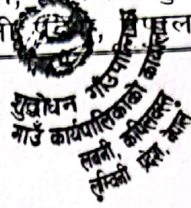 शुद्धोधन गाउँपालिका
गाउँ कार्यपालिकाको कार्यालय
लबनी, कपिलवस्तु
लुम्बिनी प्रदेश, नेपाल